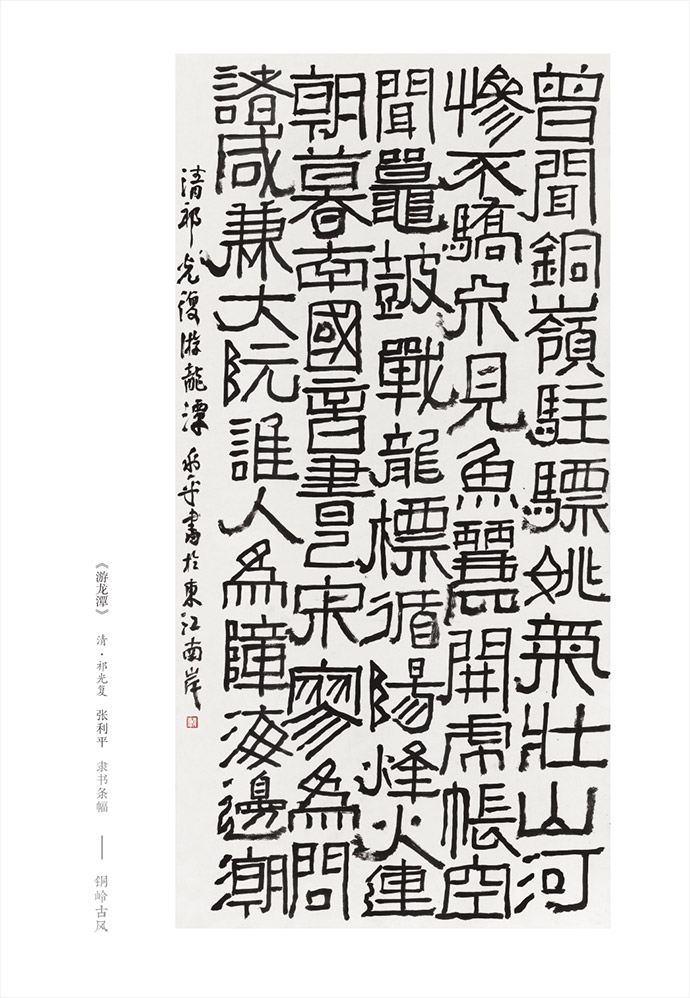 曾聞銅嶺駐驃姚氣壯山河
慘不驕見魚麗開虎帳空
聞鼉鼓戰龍標循陽烽火連
朝暮南國音書已宋寥為問
諸咸兼大阮誰人為障海邊潮
清祁光復游龍潭 利平書於東江南岸
《游龙潭》 清·祁光复 张利平 隶书条幅 —— 铜岭古风